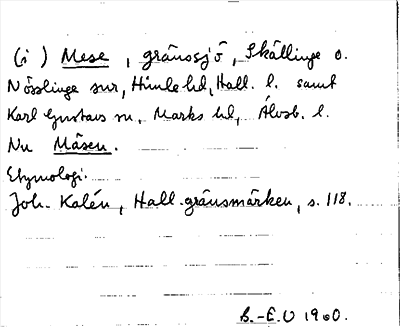 (i) Mese, gränssjö, Skällinge o.
Nösslinge snr, Himle hd, Hall. l. samt
Karl Gustavs sn, Marks hd, Älvsb. l.
Nu Mäsen.
Etymologi.
Joh. Kalén, Hall. gränsmärken, s. 118.
B.-E.U 1960.